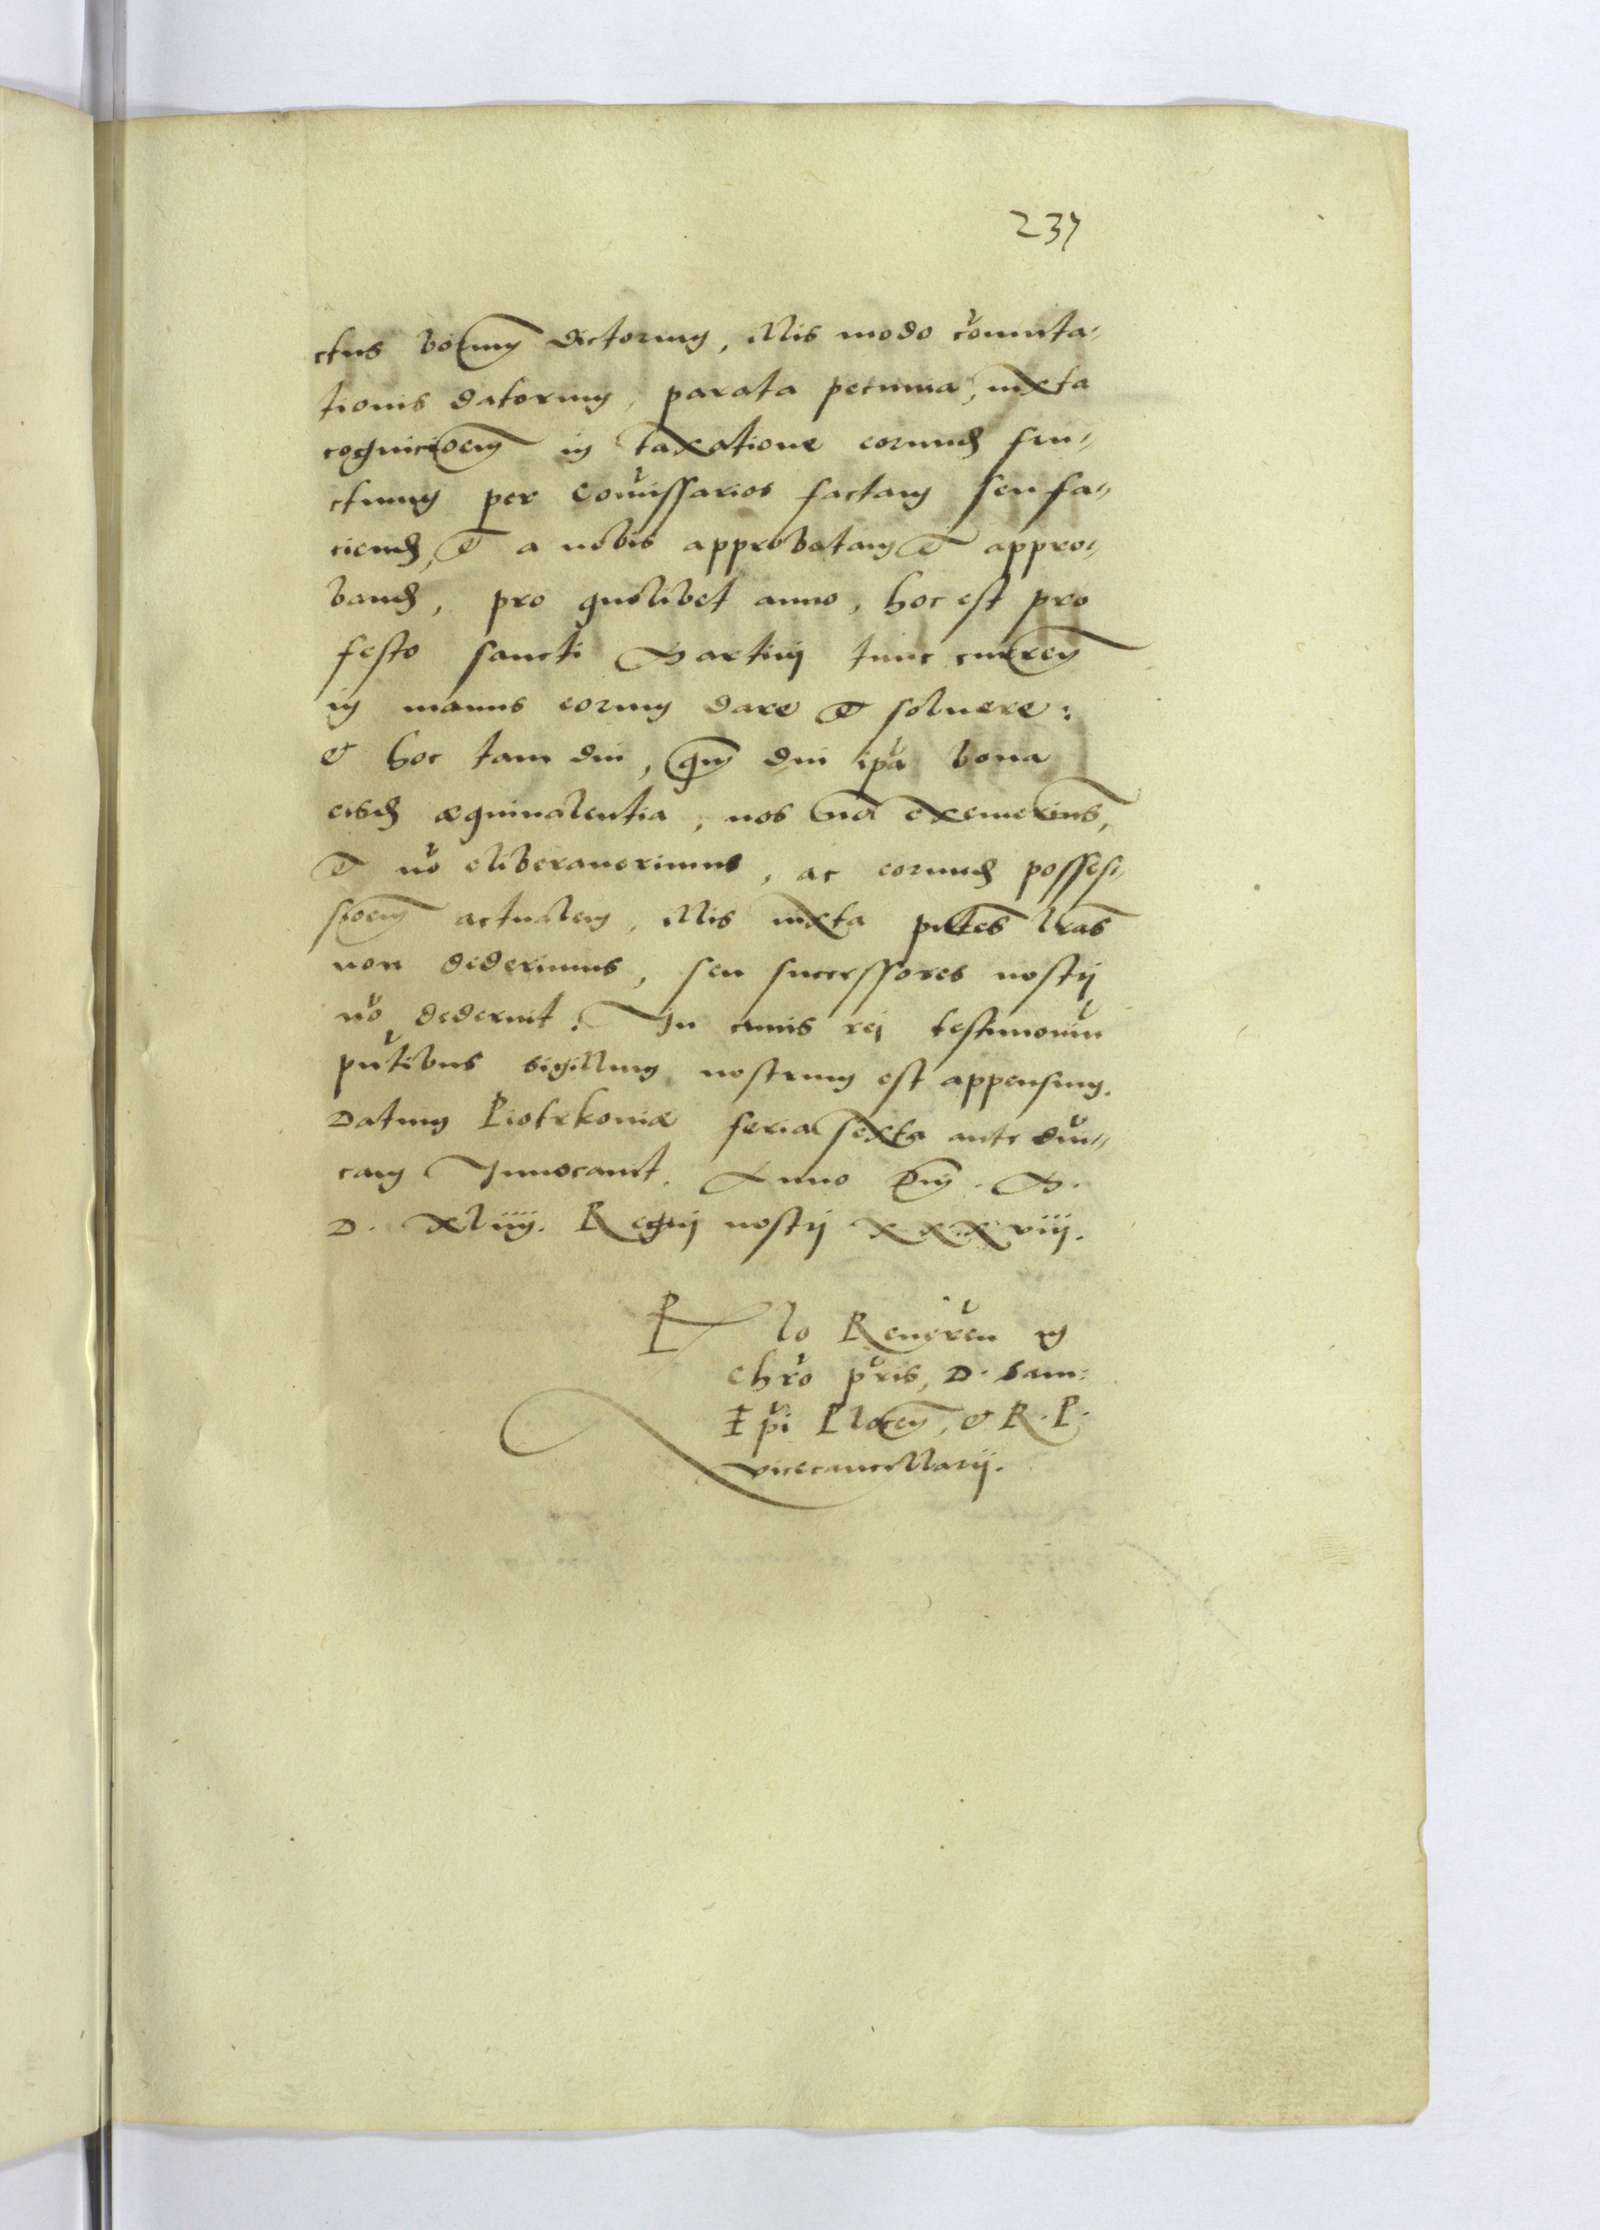 237
ctus bonorum dictorum, illis modo com̄uta-
tionis datorum, parata pecunia, iuxta
cognicioem in taxatione eorund fru-
ctuum per com̄issarios factam seu fa-
ciend, et a nobis approbatam et appro-
band, pro quolibet anno, hoc est pro
festo sancti Martini tunc curren
in manus eorum dare et soluere:
et hoc tam diu, quam diu ip̄a bona
eisd æquiualentia, nos exemerimus,
et nō eliberauerimus, ac eorund posses-
sioem actualem, illis iuxta pn̄tes lr̄as
non dederimus, seu successores nostri
nō dederint. In cuius rei testimoniū
pn̄tibus sigillum nostrum est appensum.
Datum Piotrkouiæ feria sexta ante dn̄i-
cam Inuocauit. Anno Dni. M.
D. xliiij. Regni nostri xxxviij.
Rlo Reueren in
Chrō pr̄is, D. Sam:
Ep̄i Plocen, et R. P.
vicecancellarij.